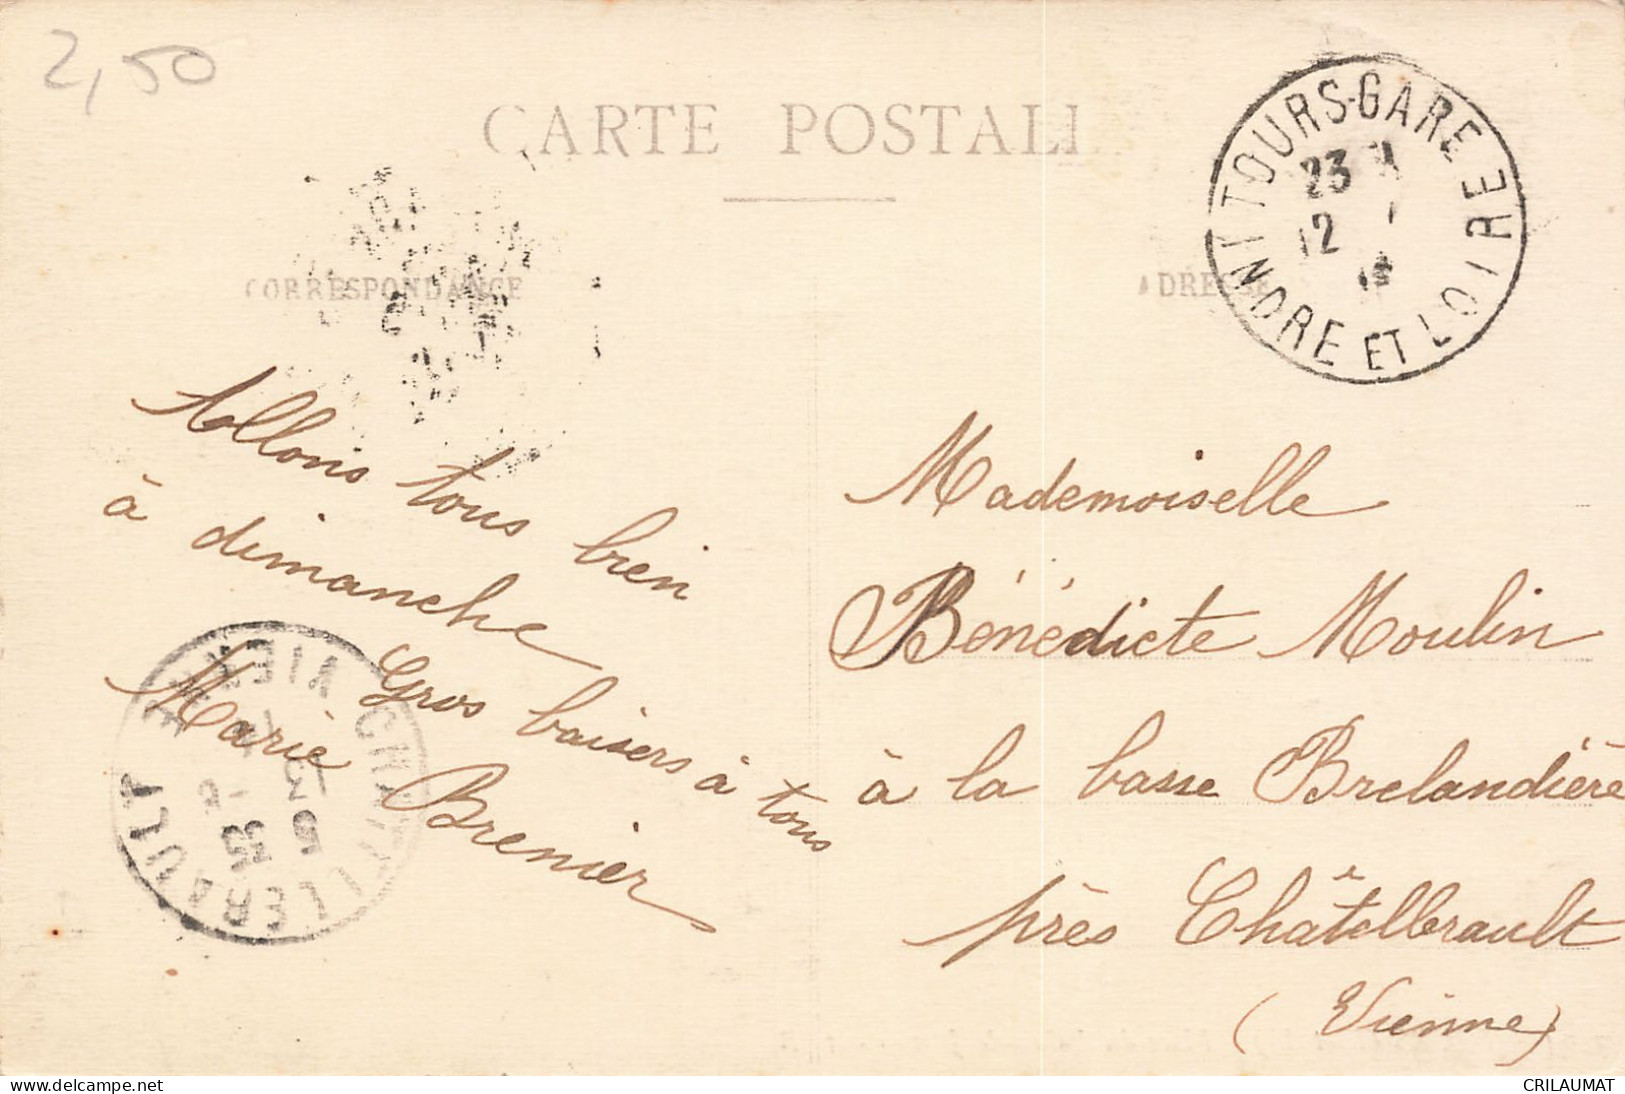 2,50
CARTE POSTALE
CORRESPONDANCE
ADRESSE
TOURS-GARE
23
12
INDRE ET LOIRE
Allons tous bien
à dimanche
Gros baisers à tous
Marie Brenier
CHATELLERAULT
VIENNE
13
5 35
Mademoiselle
Bénédicte Moulin
à la basse Brelandière
près Châtellerault
(Vienne)
CRILAUMAT